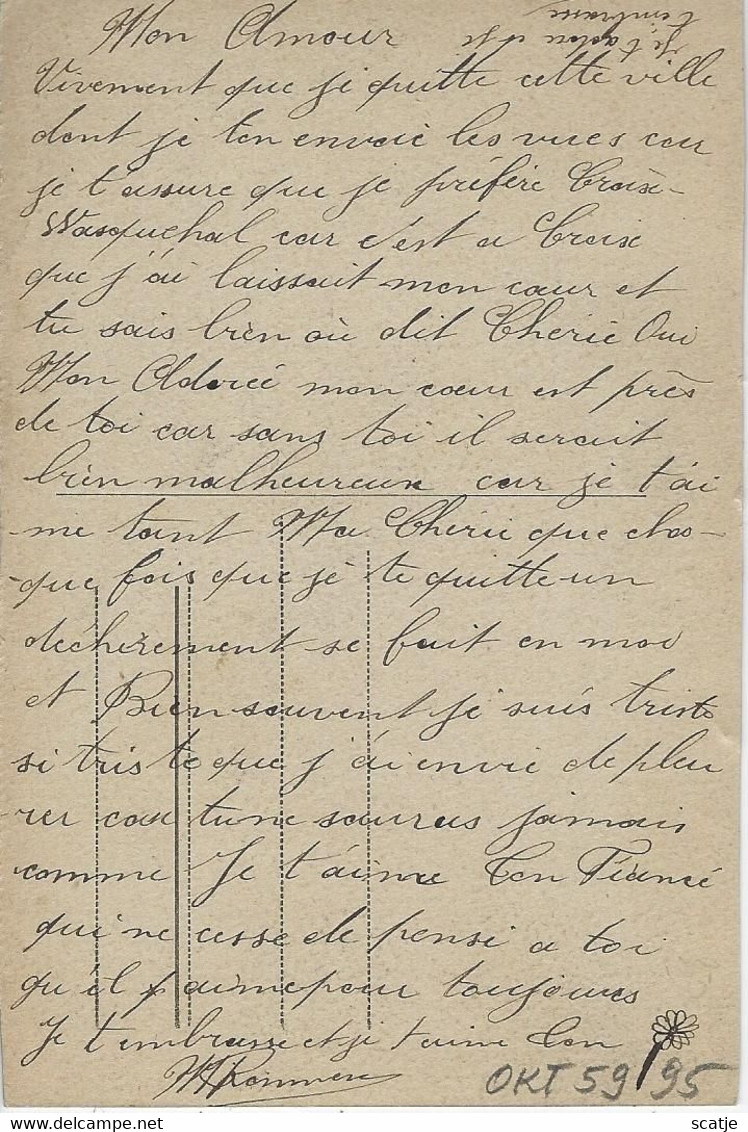 Mon Amour
Je t'adore et je
t'embrasse
Vivement que je quitte cette ville
dont je t'en envoie les vues car
je t'assure que je préfère Croix-
Wasquehal car c'est a Croix
que j'ai laissait mon cœur et
tu sais bien où dit Cherie Oui
Mon Adoreé mon cœur est près
de toi car sans toi il serait
bien malheureux car je t'ai
me tant Ma Cherie que cha-
-que fois que je te quitte un
déchirement se fait en moi
et Bien souvent je suis triste
si triste que j'ai envie de pleu
rer car tu ne sauras jamais
comme Je t'aime Ton Fiancé
qui ne cesse de pensé a toi
qu'il aime pour toujours
Je t'embrasse et je t'aime Ton
OKT 59 95
scatje